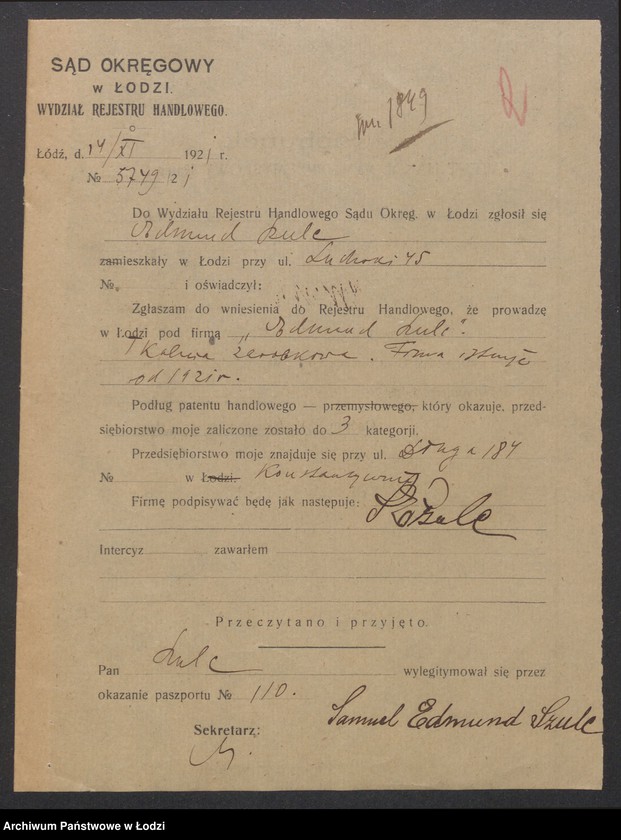 SĄD OKRĘGOWY
w ŁODZI.
WYDZIAŁ REJESTRU HANDLOWEGO.
1849
2
Łódź, d. 14/XI 1921 r.
№ 5749/21
Do Wydziału Rejestru Handlowego Sądu Okręg. w Łodzi zgłosił się
Edmund Szulc
zamieszkały w Łodzi przy ul. 45
№ i oświadczył:
Zgłaszam do wniesienia do Rejestru Handlowego, że prowadzę
w Łodzi pod firmą „Edmund Szulc".
Tkalnia zarobkowa. Firma istnieje
od 1921 r.
Podług patentu handlowego — przemysłowego, który okazuje, przed-
siębiorstwo moje zaliczone zostało do 3 kategorji.
Przedsiębiorstwo moje znajduje się przy ul. Długa 184
№ w Łodzi. Konstantynów
Firmę podpisywać będę jak następuje: Szulc
Intercyz zawarłem
Przeczytano i przyjęto.
Pan Szulc wylegitymował się przez
okazanie paszportu № 110.
Samuel Edmund Szulc
Sekretarz:
Archiwum Państwowe w Łodzi